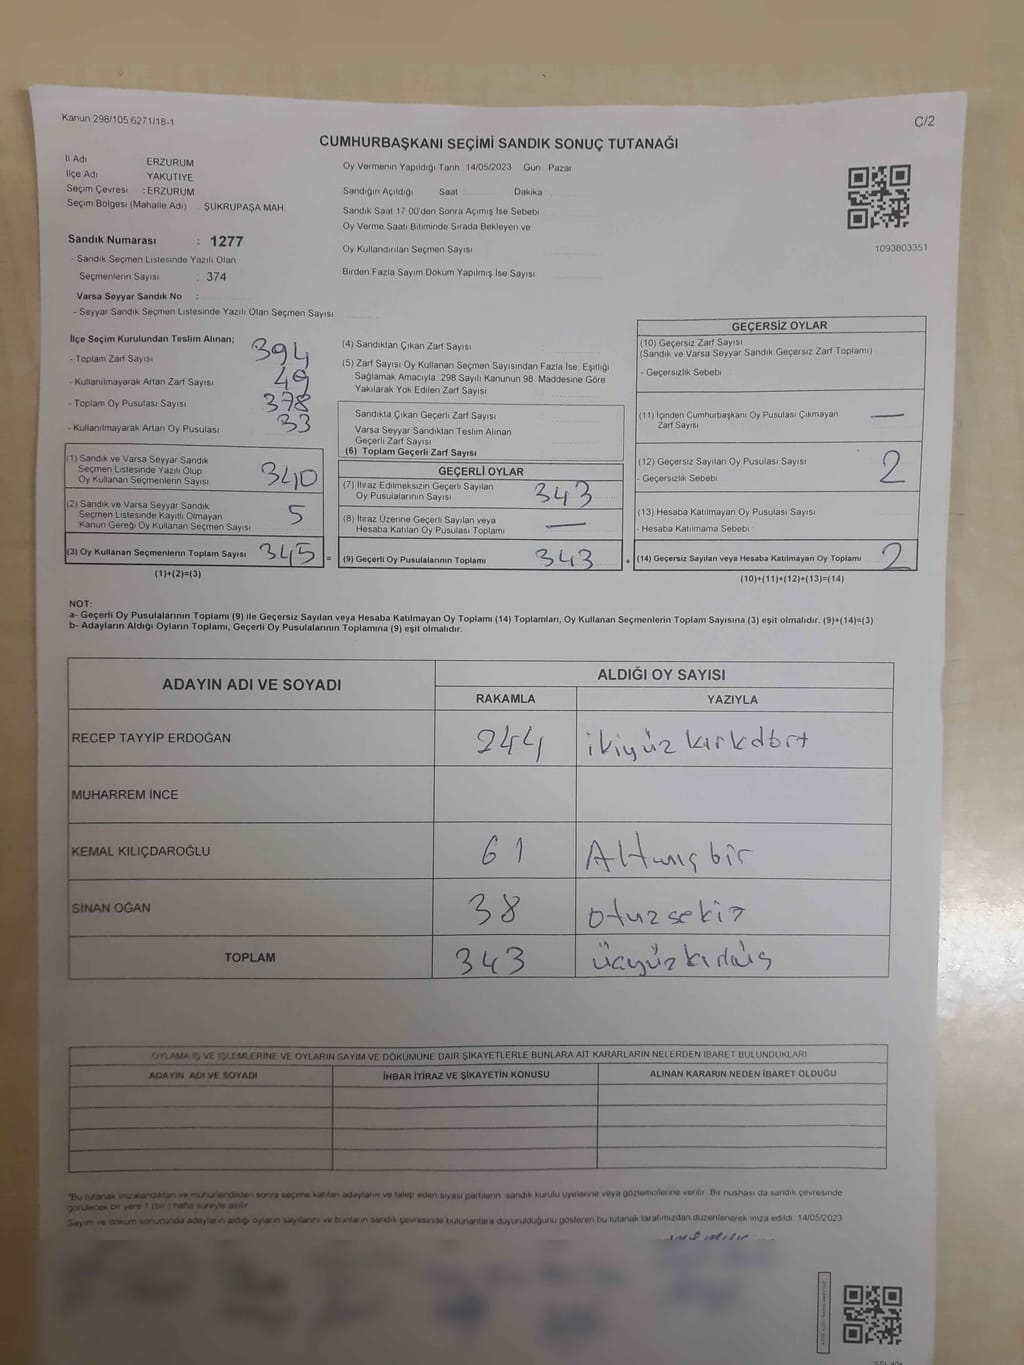 Kanun 298/105,6271/18-1
C/2
CUMHURBAŞKANI SEÇİMİ SANDIK SONUÇ TUTANAĞI
İl Adı ERZURUM
İlçe Adı YAKUTİYE
Seçim Çevresi : ERZURUM
Seçim Bölgesi (Mahalle Adı) ŞÜKRÜPAŞA MAH.
Oy Vermenin Yapıldığı Tarih 14/05/2023 Gün Pazar
Sandığın Açıldığı Saat Dakika
Sandık Saat 17:00'den Sonra Açımış İse Sebebi
Oy Verme Saati Bitiminde Sırada Bekleyen ve
Oy Kullandırılan Seçmen Sayısı
Birden Fazla Sayım Döküm Yapılmış İse Sayısı
1093803351
Sandık Numarası : 1277
- Sandık Seçmen Listesinde Yazılı Olan
Seçmenlerin Sayısı : 374
Varsa Seyyar Sandık No :
- Seyyar Sandık Seçmen Listesinde Yazılı Olan Seçmen Sayısı
İlçe Seçim Kurulundan Teslim Alınan;
- Toplam Zarf Sayısı 394
- Kullanılmayarak Artan Zarf Sayısı 49
- Toplam Oy Pusulası Sayısı 378
- Kullanılmayarak Artan Oy Pusulası 33
(1) Sandık ve Varsa Seyyar Sandık
Seçmen Listesinde Yazılı Olup
Oy Kullanan Seçmenlerin Sayısı 340
(2) Sandık ve Varsa Seyyar Sandık
Seçmen Listesinde Kayıtlı Olmayan
Kanun Gereği Oy Kullanan Seçmen Sayısı 5
(3) Oy Kullanan Seçmenlerin Toplam Sayısı 345 =
(1)+(2)=(3)
(4) Sandıktan Çıkan Zarf Sayısı
(5) Zarf Sayısı Oy Kullanan Seçmen Sayısından Fazla İse, Eşitliği
Sağlamak Amacıyla, 298 Sayılı Kanunun 98. Maddesine Göre
Yakılarak Yok Edilen Zarf Sayısı
Sandıkta Çıkan Geçerli Zarf Sayısı
Varsa Seyyar Sandıktan Teslim Alınan
Geçerli Zarf Sayısı
(6) Toplam Geçerli Zarf Sayısı
GEÇERLİ OYLAR
(7) İtiraz Edilmeksizin Geçerli Sayılan
Oy Pusulalarının Sayısı 343
(8) İtiraz Üzerine Geçerli Sayılan veya
Hesaba Katılan Oy Pusulası Toplamı —
(9) Geçerli Oy Pusulalarının Toplamı 343 +
GEÇERSİZ OYLAR
(10) Geçersiz Zarf Sayısı
(Sandık ve Varsa Seyyar Sandık Geçersiz Zarf Toplamı)
- Geçersizlik Sebebi
(11) İçinden Cumhurbaşkanı Oy Pusulası Çıkmayan
Zarf Sayısı —
(12) Geçersiz Sayılan Oy Pusulası Sayısı 2
- Geçersizlik Sebebi
(13) Hesaba Katılmayan Oy Pusulası Sayısı
- Hesaba Katılmama Sebebi
(14) Geçersiz Sayılan veya Hesaba Katılmayan Oy Toplamı 2
(10)+(11)+(12)+(13)=(14)
NOT:
a- Geçerli Oy Pusulalarının Toplamı (9) ile Geçersiz Sayılan veya Hesaba Katılmayan Oy Toplamı (14) Toplamları, Oy Kullanan Seçmenlerin Toplam Sayısına (3) eşit olmalıdır. (9)+(14)=(3)
b- Adayların Aldığı Oyların Toplamı, Geçerli Oy Pusulalarının Toplamına (9) eşit olmalıdır.
ADAYIN ADI VE SOYADI
ALDIĞI OY SAYISI
RAKAMLA YAZIYLA
RECEP TAYYİP ERDOĞAN 244 ikiyüz kırkdört
MUHARREM İNCE
KEMAL KILIÇDAROĞLU 61 Altmış bir
SİNAN OĞAN 38 otuzsekiz
TOPLAM 343 üçyüz
OYLAMA İŞ VE İŞLEMLERİNE VE OYLARIN SAYIM VE DÖKÜMÜNE DAİR ŞİKAYETLERLE BUNLARA AİT KARARLARIN NELERDEN İBARET BULUNDUKLARI
ADAYIN ADI VE SOYADI İHBAR İTİRAZ VE ŞİKAYETİN KONUSU ALINAN KARARIN NEDEN İBARET OLDUĞU
"Bu tutanak imzalandıktan ve mühürlendikten sonra seçime katılan adayların ve talep eden siyasi partilerin sandık kurulu üyelerine veya gözlemcilerine verilir. Bir nüshası da sandık çevresinde
görülecek bir yere 1 (bir) hafta süreyle asılır
Sayım ve döküm sonucunda adayların aldığı oyların sayılarını ve bunların sandık çevresinde bulunanlara duyurulduğunu gösteren bu tutanak tarafımızdan düzenlenerek imza edildi. 14/05/2023